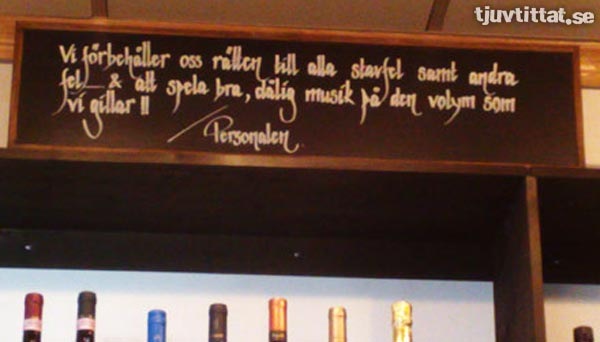 tjuvtittat.se
Vi förbehåller oss rätten till alla stavfel samt andra
fel__ & att spela bra, dålig musik på den volym som
vi gillar !!
/Personalen.